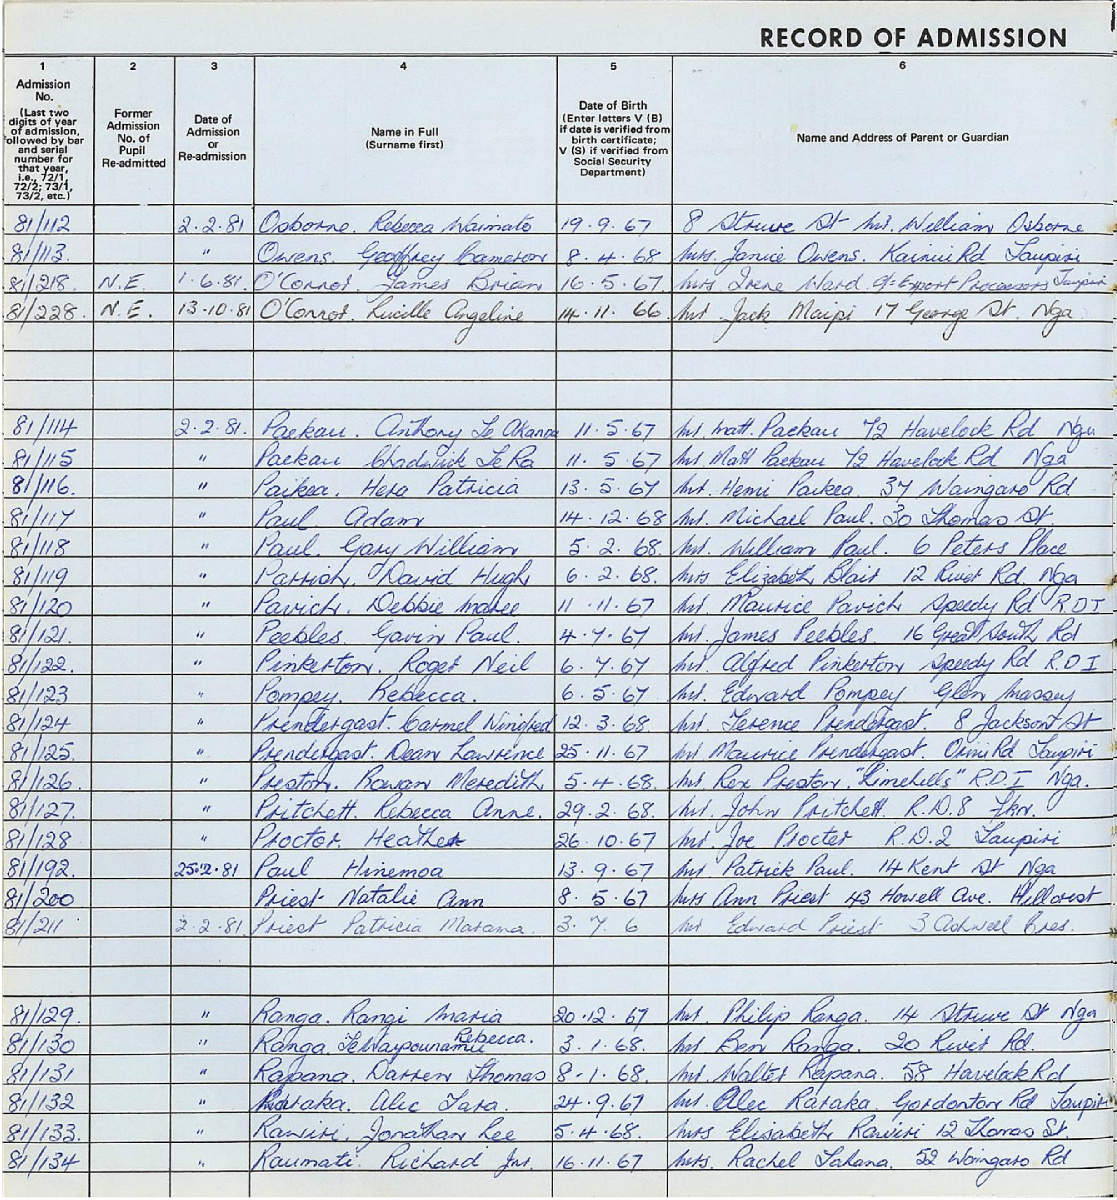 RECORD OF ADMISSION
1 2 3 4 5 6
Admission No. (Last two digits of year of admission, followed by bar and serial number for that year, i.e., 72/1, 72/2; 73/1, 73/2, etc.)
Former Admission No. of Pupil Re-admitted
Date of Admission or Re-admission
Name in Full (Surname first)
Date of Birth (Enter letters V (B) if date is verified from birth certificate; V (S) if verified from Social Security Department)
Name and Address of Parent or Guardian
81/112 2.2.81 Osborne. Rebecca Waimato 19.9.67 8 Struwe St Mr. William Osborne
81/113 " Owens. Geoffrey Cameron 8.4.68 Mrs. Janice Owens. Kainui Rd Taupiri
81/218. N.E. 1.6.81. O'Connor. James Brian 16.5.67 Mrs Irene Ward. Export Processors Taupiri
81/228. N.E. 13.10.81 O'Connor. Lucille Angeline 14.11.66 Mr. Jack Maipi 17 George St. Nga
81/114 2.2.81. Paekau. Anthony Te Akanoa 11.5.67 Mr. Matt. Paekau 72 Havelock Rd Nga
81/115 " Paekau Chadwick Te Ra 11.5.67 Mr. Matt Paekau 72 Havelock Rd Nga
81/116. " Paikea. Hera Patricia 13.5.67 Mr. Hemi Paikea. 37 Waingaro Rd
81/117 " Paul Adam 14.12.68 Mr. Michael Paul. 30 Thomas St.
81/118 " Paul. Gary William 5.2.68. Mr. William Paul. 6 Peters Place
81/119 " Parrish. David Hugh 6.2.68. Mrs Elizabeth Blair 12 River Rd. Nga
81/120 " Pavich. Debbie Maree 11.11.67 Mr. Maurice Pavich Speedy Rd R.D I
81/121. " Peebles. Gavin Paul. 4.7.67 Mr. James Peebles. 16 Great South Rd
81/122. " Pinkerton. Roger Neil 6.7.67 Mr. Alfred Pinkerton Speedy Rd R.D I
81/123 " Pompey. Rebecca. 6.5.67 Mr. Edward Pompey Glen Massey
81/124 " Prendergast. Carmel Winifred 12.3.68. Mr Terence Prendergast. 8 Jackson St
81/125. " Prendergast. Dean Lawrence 25.11.67 Mr Maurice Prendergast. Orini Rd Taupiri
81/126 " Preston. Rowan Meredith 5.4.68. Mr Rex Preston. "Limehills" R.D.I Nga.
81/127. " Pritchett. Rebecca Anne. 29.2.68. Mr. John Pritchett. R.D.8 Hkn.
81/128 " Proctor. Heather 26.10.67 Mr. Joe Procter R.D.2 Taupiri
81/192. 25.2.81 Paul Hinemoa 13.9.67 Mr. Patrick Paul. 14 Kent St Nga
81/200 Priest Natalie Ann 8.5.67 Mrs Ann Priest 43 Howell Ave. Hillcrest
81/211 2.2.81. Priest Patricia Marama. 3.7.6 Mr Edward Priest 3 Ashwell Cres.
81/129. " Ranga. Rangi Maria 20.12.67 Mr. Philip Ranga. 14 Struwe St Nga
81/130 " Ranga. Te Waipounamu Rebecca. 3.1.68. Mr Ben Ranga. 20 River Rd.
81/131 " Rapana. Darren Thomas 8.1.68. Mr. Walter Rapana. 58 Havelock Rd
81/132 " Raraka. Alec Tara. 24.9.67 Mr. Alec Raraka. Gordonton Rd Taupiri
81/133. " Rawiri. Jonathan Lee 5.4.68. Mrs Elisabeth Rawiri 12 Thomas St.
81/134 " Raumati. Richard Jnr. 16.11.67 Mrs. Rachel Tahana. 52 Waingaro Rd